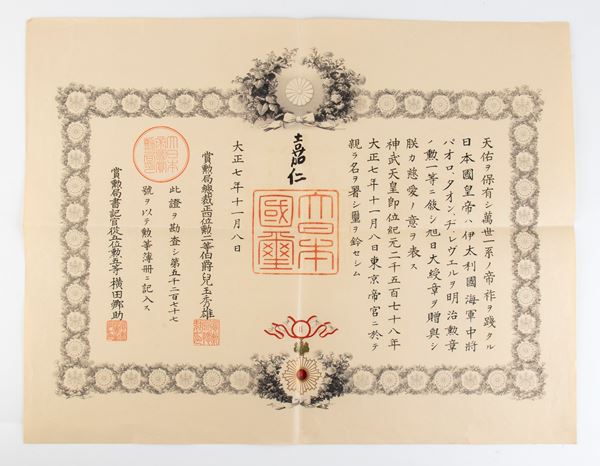 天佑ヲ保有シ萬世一系ノ帝祚ヲ踐タル
日本國皇帝ハ伊太利國海軍中將
パオロ、タオン、ヂ、レヴエルヲ明治勲章
ノ勲一等ニ敘シ旭日大綬章ヲ贈與シ
朕カ慈愛ノ意ヲ表ス
神武天皇即位紀元二千五百七十八年
大正七年十一月八日東京帝宮ニ於テ
親ラ名ヲ署シ璽ヲ鈐セシム
嘉仁
大日本國璽
大正七年十一月八日
賞勲局總裁正四位勲二等伯爵兒玉秀雄
此證ヲ勘査シ第五千二百七十七
號ヲ以テ勲等簿册ニ記入ス
賞勲局書記官從五位勲五等橫田郷助